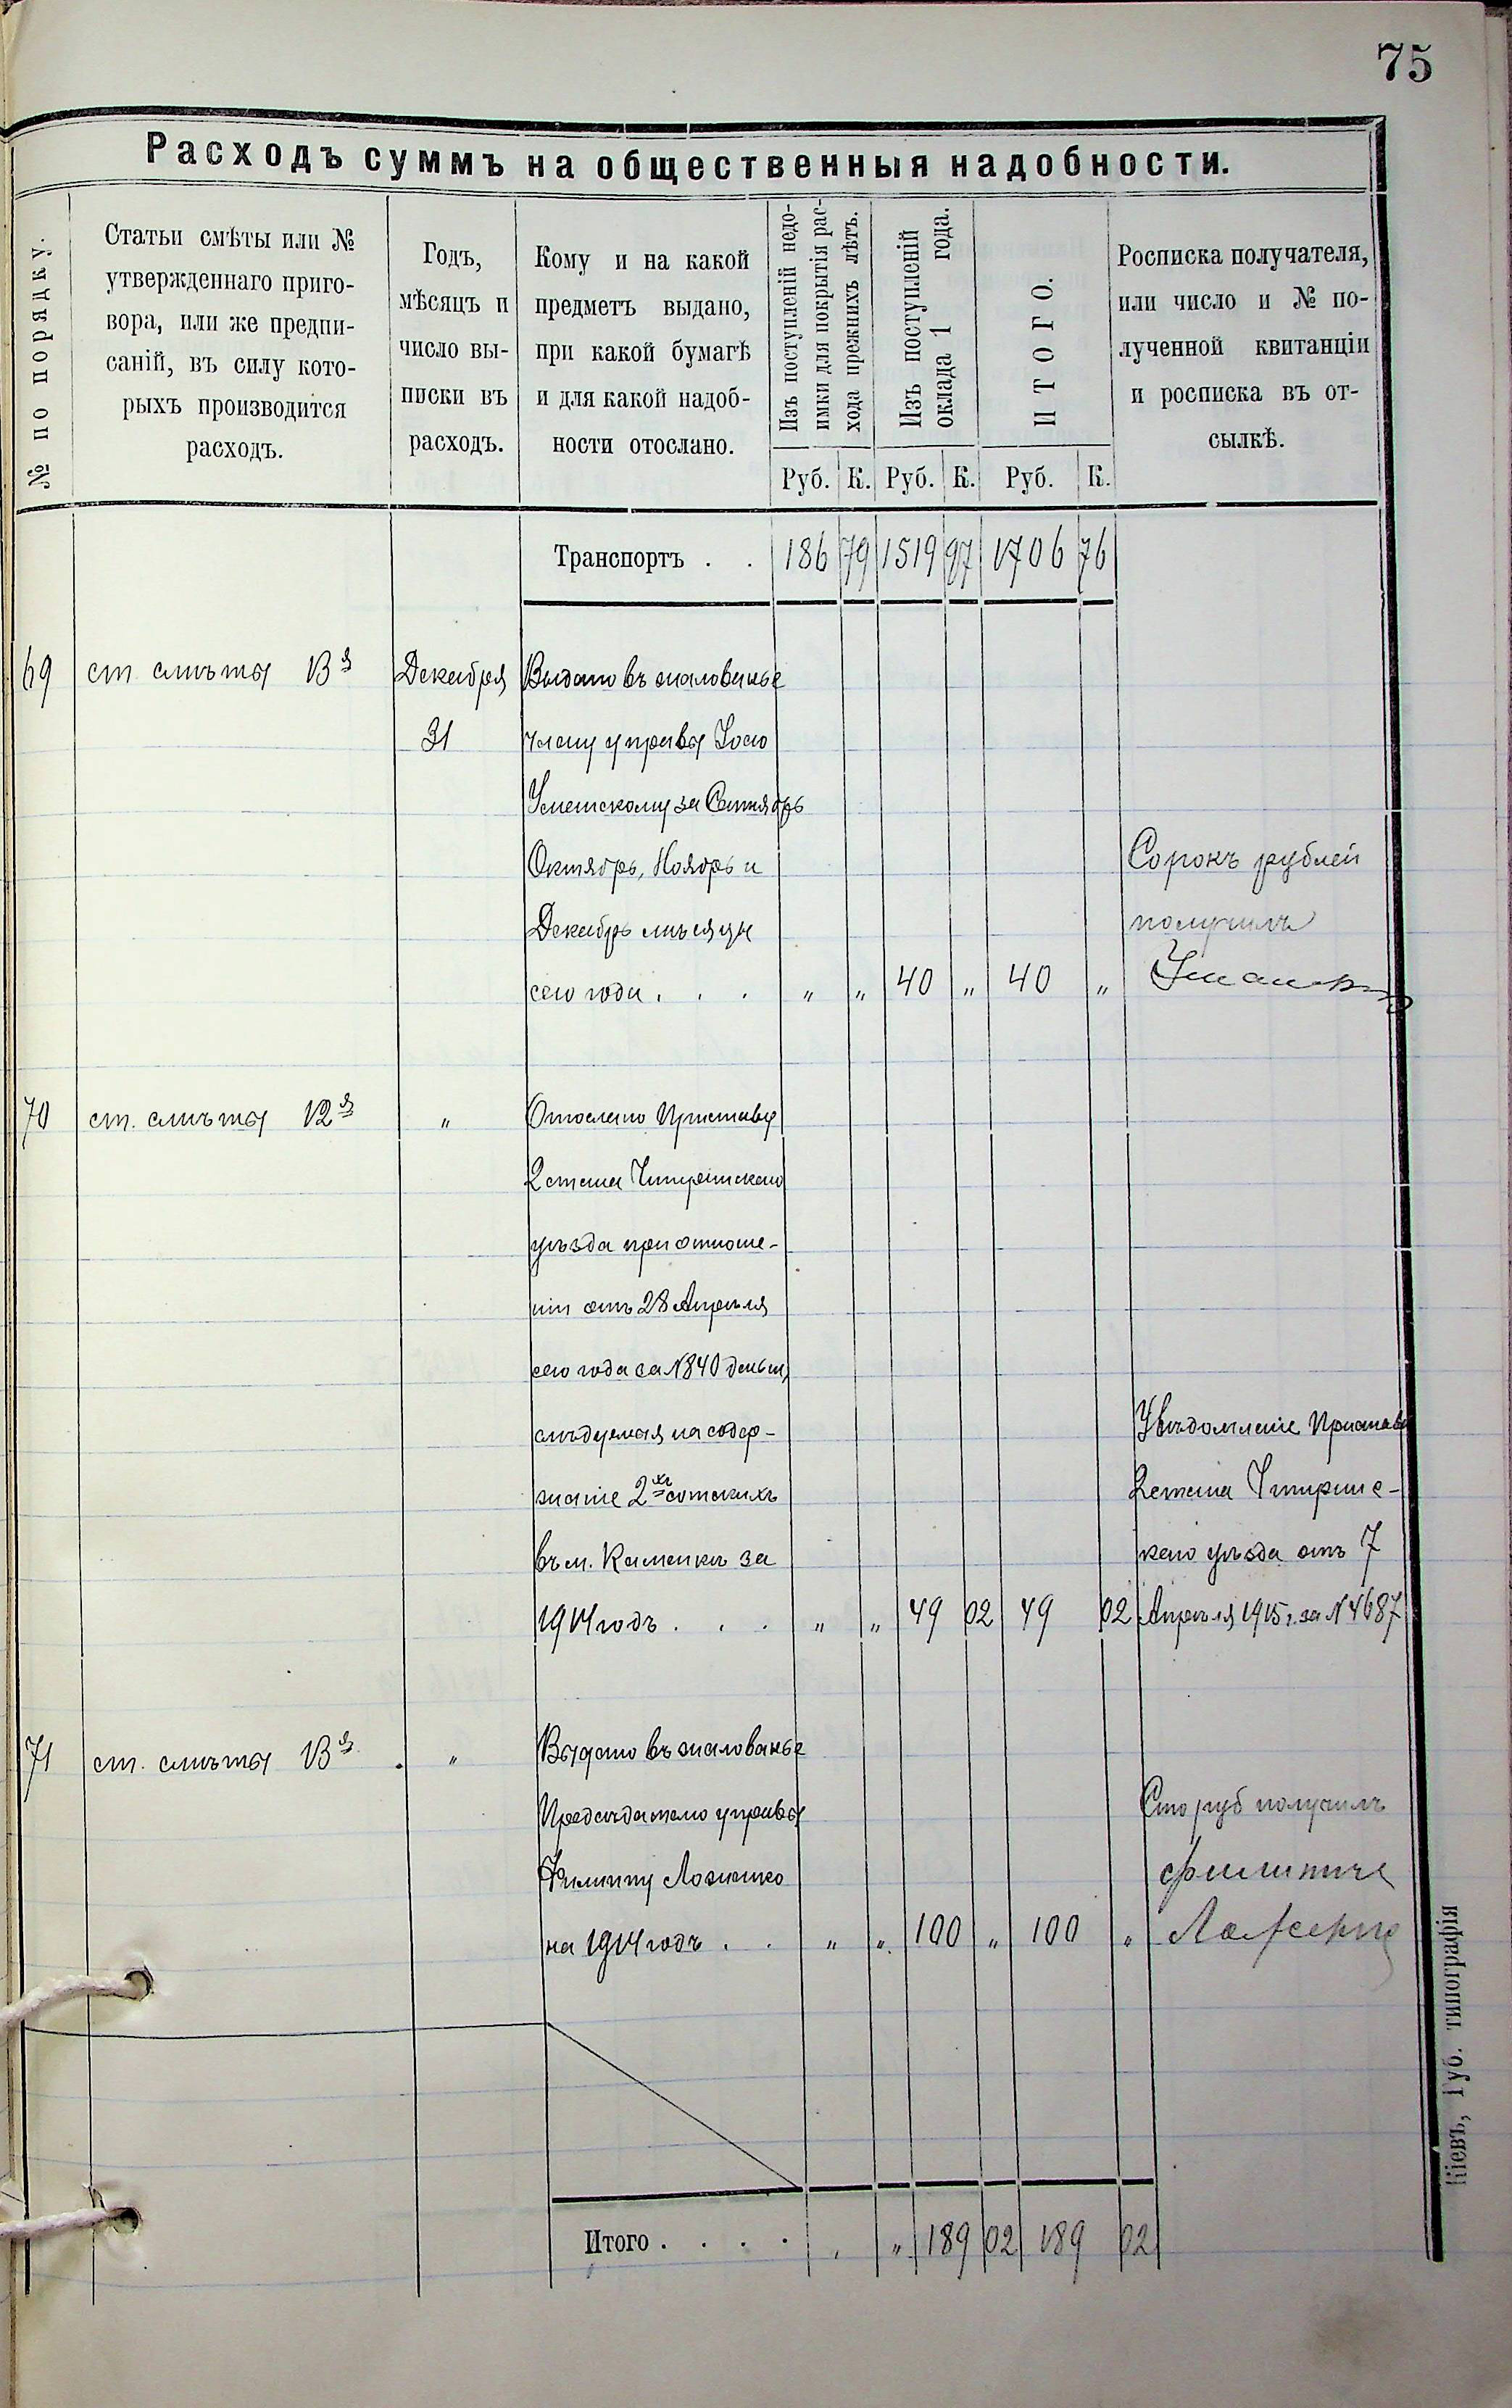 75
Расходъ суммъ на общественныя надобности.
№ по порядку.
Статьи смѣты или №
утвержденнаго приго-
вора, или же предпи-
саній, въ силу кото-
рыхъ производится
расходъ.
Годъ,
мѣсяцъ и
число вы-
писки въ
расходъ.
Кому и на какой
предметъ выдано,
при какой бумагѣ
и для какой надоб-
ности отослано.
Изъ поступленій недо-
имки для покрытія рас-
хода прежнихъ лѣтъ.
Изъ поступленій
оклада 1 года.
ИТОГО.
Росписка получателя,
или число и № по-
лученной квитанціи
и росписка въ от-
сылкѣ.
Руб. К. Руб. К. Руб. К.
Транспортъ . . 186 79 1519 97 1706 76
69 ст. смѣты 13я Декабря Выдано въ жалованье
31 члену управы
за Сентябрь
Октябрь, Ноябрь и Сорокъ рублей
Декабрь мѣсяцы получилъ
сего года . . . „ „ 40 „ 40 „
70 ст. смѣты 12я „ Отослано Приставу
2 стана Чигиринскаго
уѣзда при отноше-
ніи отъ 28 Апрѣля
сего года за № 840 деньги,
слѣдуемая на содер- Увѣдомленіе Пристава
жаніе 2хъ сотскихъ 2 стана Чигиринс-
въ м. Каменкѣ за каго уѣзда отъ 7
1914 годъ . . . „ „ 49 02 49 02 Апрѣля 1915 г. за № 4687
71 ст. смѣты 13я „ Выдано въ жалованье
Предсѣдателю управы Сто руб получилъ
Филиппу
на 1914 годъ . . „ „ 100 „ 100 „
Итого . . . . „ „ 189 02 189 02
Кіевъ, Губ. типографія